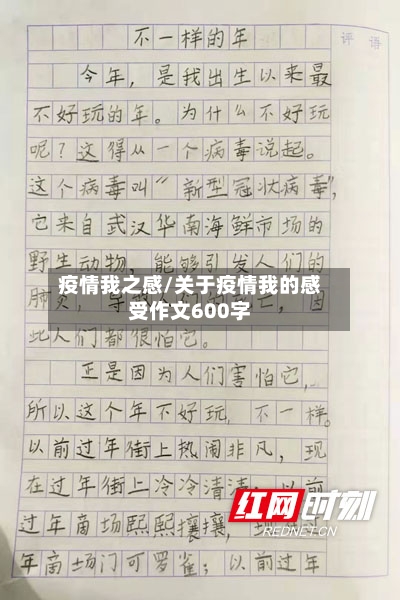 不一样的年
评 语
今年，是我出生以来最
不好玩的年。为什么不好玩
呢？这得从一个病毒说起。
这个病毒叫“新型冠状病毒”，
它来自武汉华南海鲜市场的
野生动物，能够引发人们的
疫情我之感/关于疫情我的感
受作文600字
肺炎，
，因
此人们都很怕它。
正是因为人们害怕它，
所以这个年不好玩，不一样。
以前过年街上热闹非凡，现
在过年街上冷冷清清；以前
过年商场熙熙攘攘，
年商场门可罗雀；以前过年
红网时刻
REDNET.CN